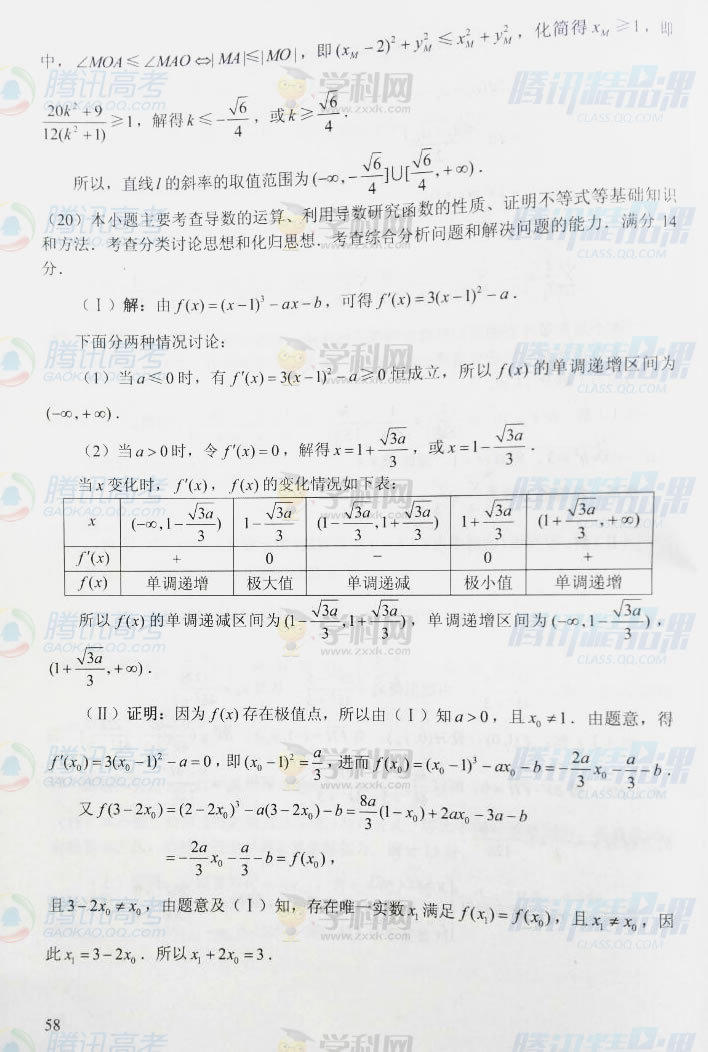 中，∠MOA≤∠MAO⇔|MA|≤|MO|，即(x_M－2)²＋y_M²≤x_M²＋y_M²，化简得x_M≥1，即
(20k²＋9)/(12(k²＋1))≥1，解得k≤－√6/4，或k≥√6/4．
所以，直线l的斜率的取值范围为(－∞,－√6/4]∪[√6/4,＋∞)．
（20）本小题主要考查导数的运算、利用导数研究函数的性质、证明不等式等基础知识
和方法．考查分类讨论思想和化归思想．考查综合分析问题和解决问题的能力．满分 14
分．
（Ⅰ）解：由f(x)=(x－1)³－ax－b，可得f′(x)=3(x－1)²－a．
下面分两种情况讨论：
（1）当a≤0时，有f′(x)=3(x－1)²－a≥0恒成立，所以f(x)的单调递增区间为
(－∞,＋∞)．
（2）当a＞0时，令f′(x)=0，解得x=1＋√3a/3，或x=1－√3a/3．
当x变化时，f′(x)，f(x)的变化情况如下表：
x (－∞,1－√3a/3) 1－√3a/3 (1－√3a/3,1＋√3a/3) 1＋√3a/3 (1＋√3a/3,＋∞)
f′(x) ＋ 0 － 0 ＋
f(x) 单调递增 极大值 单调递减 极小值 单调递增
所以f(x)的单调递减区间为(1－√3a/3,1＋√3a/3)，单调递增区间为(－∞,1－√3a/3)，
(1＋√3a/3,＋∞)．
（Ⅱ）证明：因为f(x)存在极值点，所以由（Ⅰ）知a＞0，且x₀≠1．由题意，得
f′(x₀)=3(x₀－1)²－a=0，即(x₀－1)²=a/3，进而f(x₀)=(x₀－1)³－ax₀－b=－(2a/3)x₀－a/3－b．
又f(3－2x₀)=(2－2x₀)³－a(3－2x₀)－b=(8a/3)(1－x₀)＋2ax₀－3a－b
=－(2a/3)x₀－a/3－b=f(x₀)，
且3－2x₀≠x₀，由题意及（Ⅰ）知，存在唯一实数x₁满足f(x₁)=f(x₀)，且x₁≠x₀，因
此x₁=3－2x₀．所以x₁＋2x₀=3．
58
腾讯高考
GAOKAO.QQ.COM
学科网
www.zxxk.com
腾讯精品课
CLASS.QQ.COM